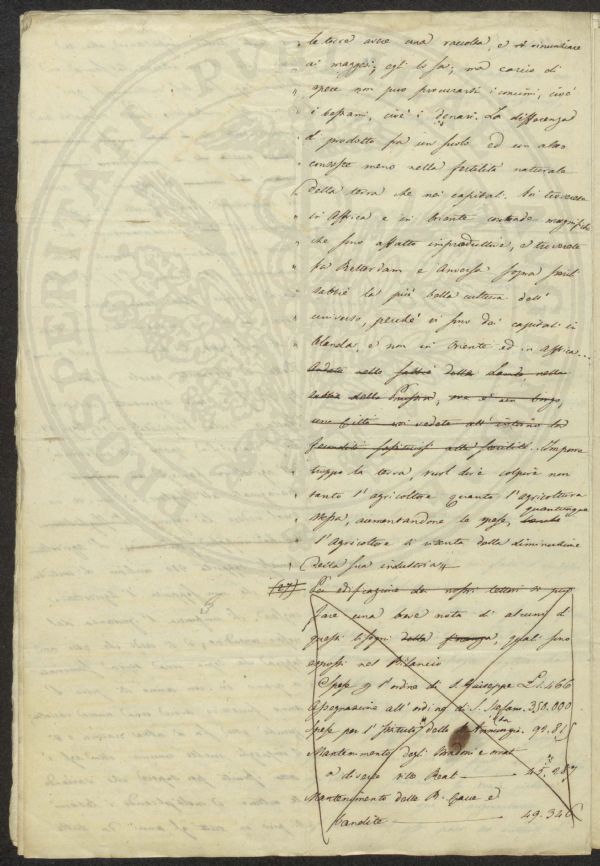 la terra avere una raccolta, e rinunziare
ai maggesi; egli lo sa; ma carico di
spese non può procurarsi i concimi, cioè
i bestiami, cioè i denari. La differenza
di prodotto fra un suolo ed un altro
consiste meno nella fertilità naturale
della terra che nei capitali. Voi troverete
in Affrica e in Oriente contrade magnifiche
che sono affatto improduttive, e troverete
fra Rotterdam e Anversa sopra
sabbie la più bella cultura dell'
universo, perchè vi sono dei capitali in
Olanda, e non in Oriente ed in Affrica...
Andate nelle sabbie delle Lande, nelle
sabbie della Prussia, ma è un borgo,
una Città voi vedete all' intorno la
fecondità alla sterilità. Imporre
troppo la terra, vuol dire colpire non
tanto l'agricoltore quanto l'agricoltura
stessa, aumentandone le spese, quantunque
l'Agricoltore si dalla diminuzione
della sua industria
(27) Per edificazione dei nostri lettori si può
fare una breve nota di alcuni di
questi bisogni della finanza, quali sono
esposti nel Bilancio
Spese p l'ordine di S. Giuseppe L. 1.466
Assegnazione all'ordine di S. Stefano. 350.000
Spese per l'Istituto della SS. Annunziata. 92.815
Mantenimento degli
a diverse RR Reali — 45.287
Mantenimento delle R. Cacce e
Bandite — 49.346